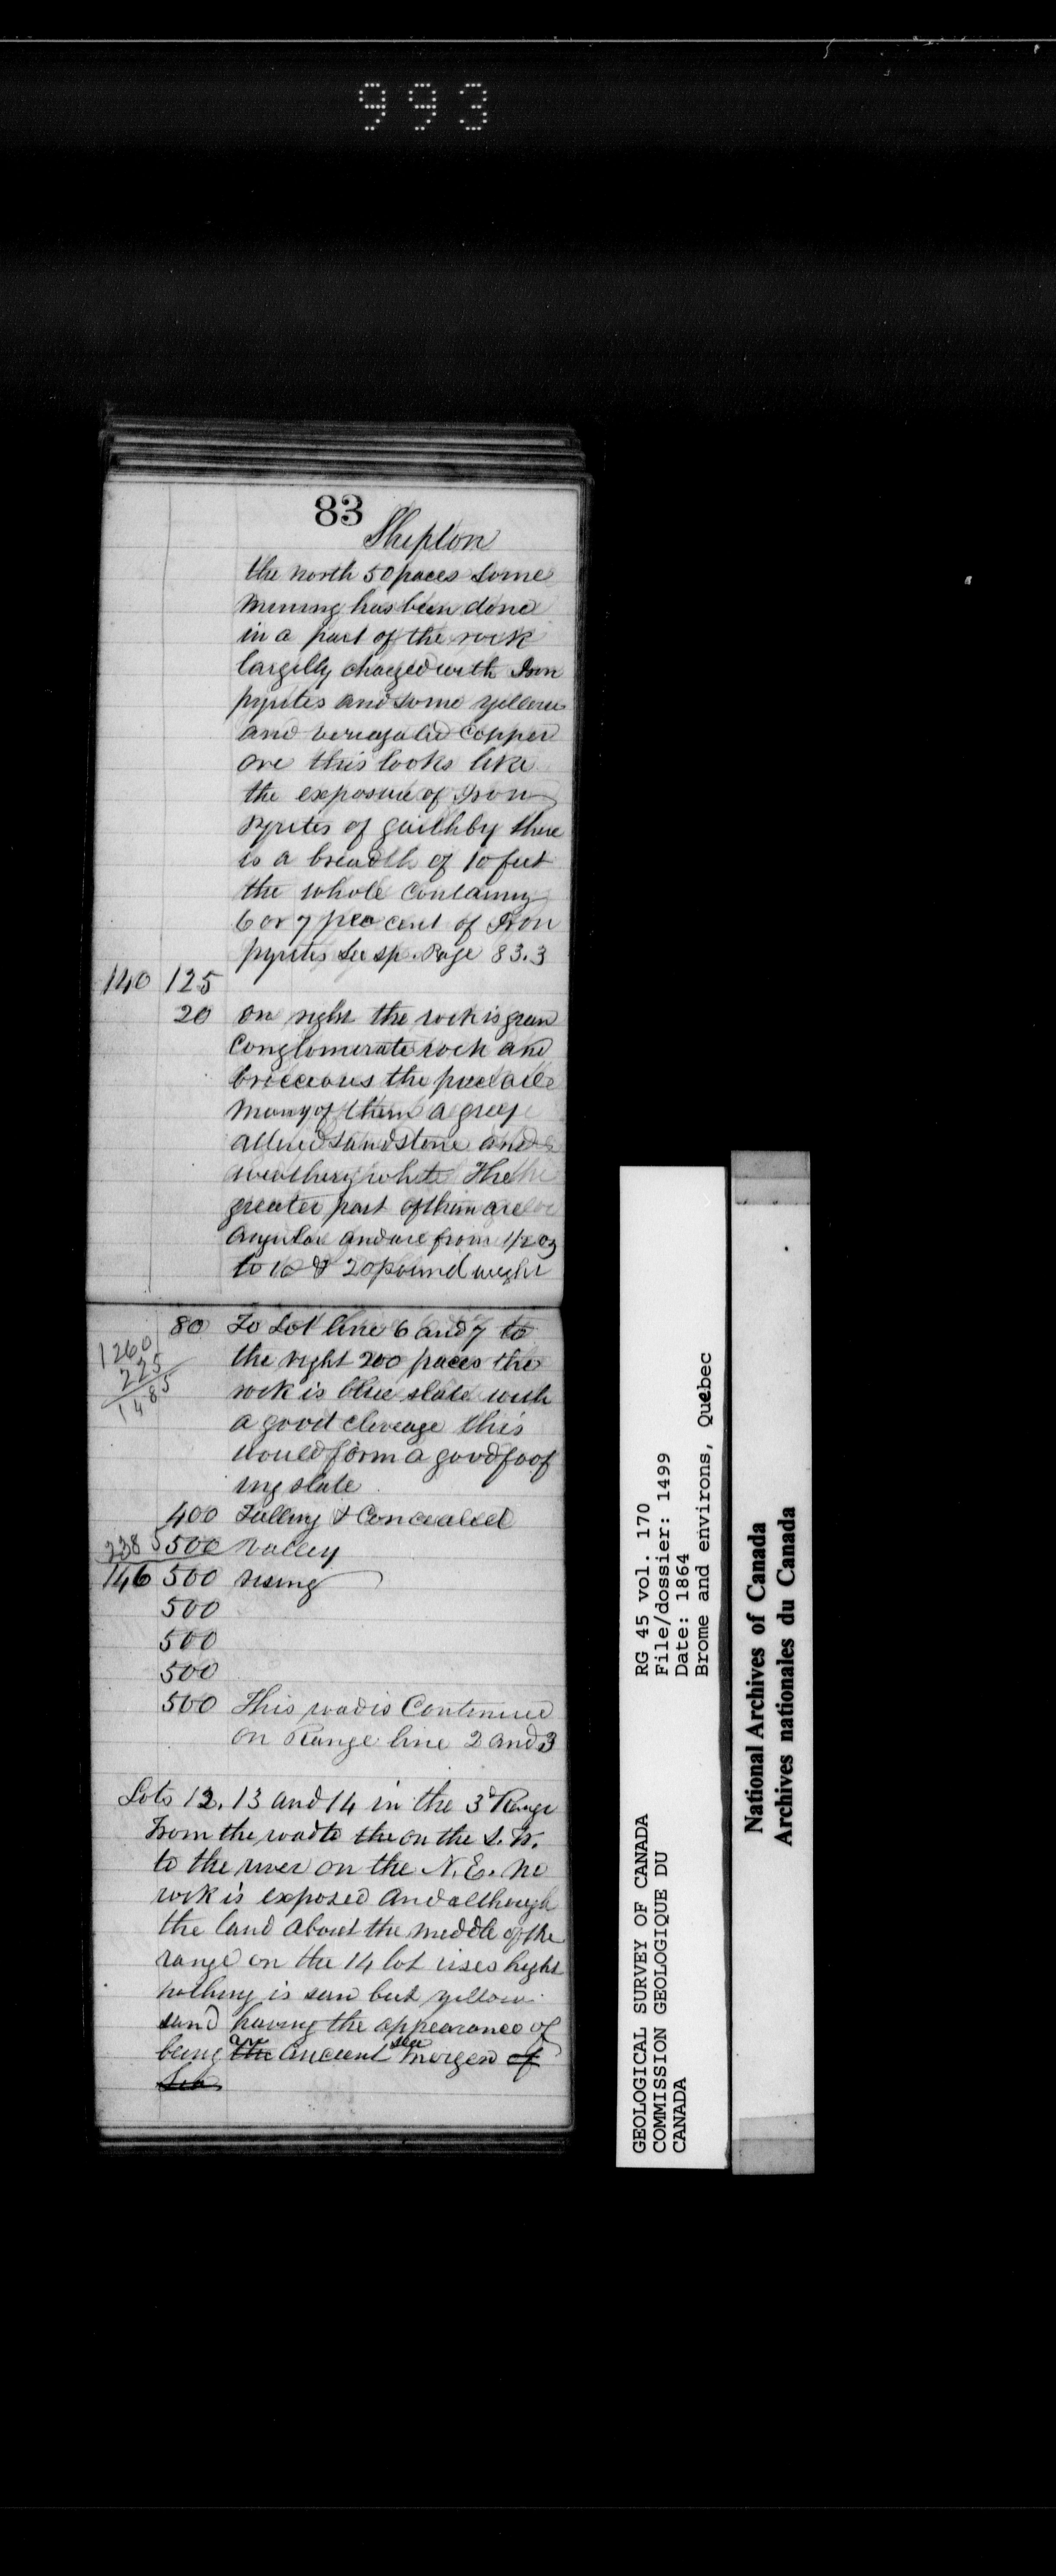 993
83
Shipton
the north 50 paces some
mining has been done
in a part of the rock
largelly charged with Iron
pyrites and some yellow
and veriagated Copper
ore this looks like
the exposure of Iron
pyrites of there
is a breadth of 10 feet
the whole Containing
6 or 7 per cent of Iron
pyrites See sp. Page 83.3
140 125
20 on right the rock is green
Conglomerate rock and
the
many of them a
sandstone and
white The
greater part of them are
angular and are from 1/2 oz
to 10 & 20 pound weight
80 To Lot line 6 and 7 to
1260
225
1485
the right 200 paces the
rock is blue slate with
a good cleveage this
would form a good
ing slate
400 Falling & Concealed
2385 500 valley
146 500 rising
500
500
500
500 This road is Continued
on Range line 2 and 3
Lots 12, 13 and 14 in the 3d Range
From the road to the on the S.W.
to the river on the N.E. no
rock is exposed and although
the land about the middle of the
range on the 14 lot rises hight
nothing is seen but yellow
sand having the appearance of
being the an ancient sea morgen of
Sea
GEOLOGICAL SURVEY OF CANADA
COMMISSION GEOLOGIQUE DU
CANADA
RG 45 vol. 170
File/dossier: 1499
Date: 1864
Brome and environs, Quebec
National Archives of Canada
Archives nationales du Canada